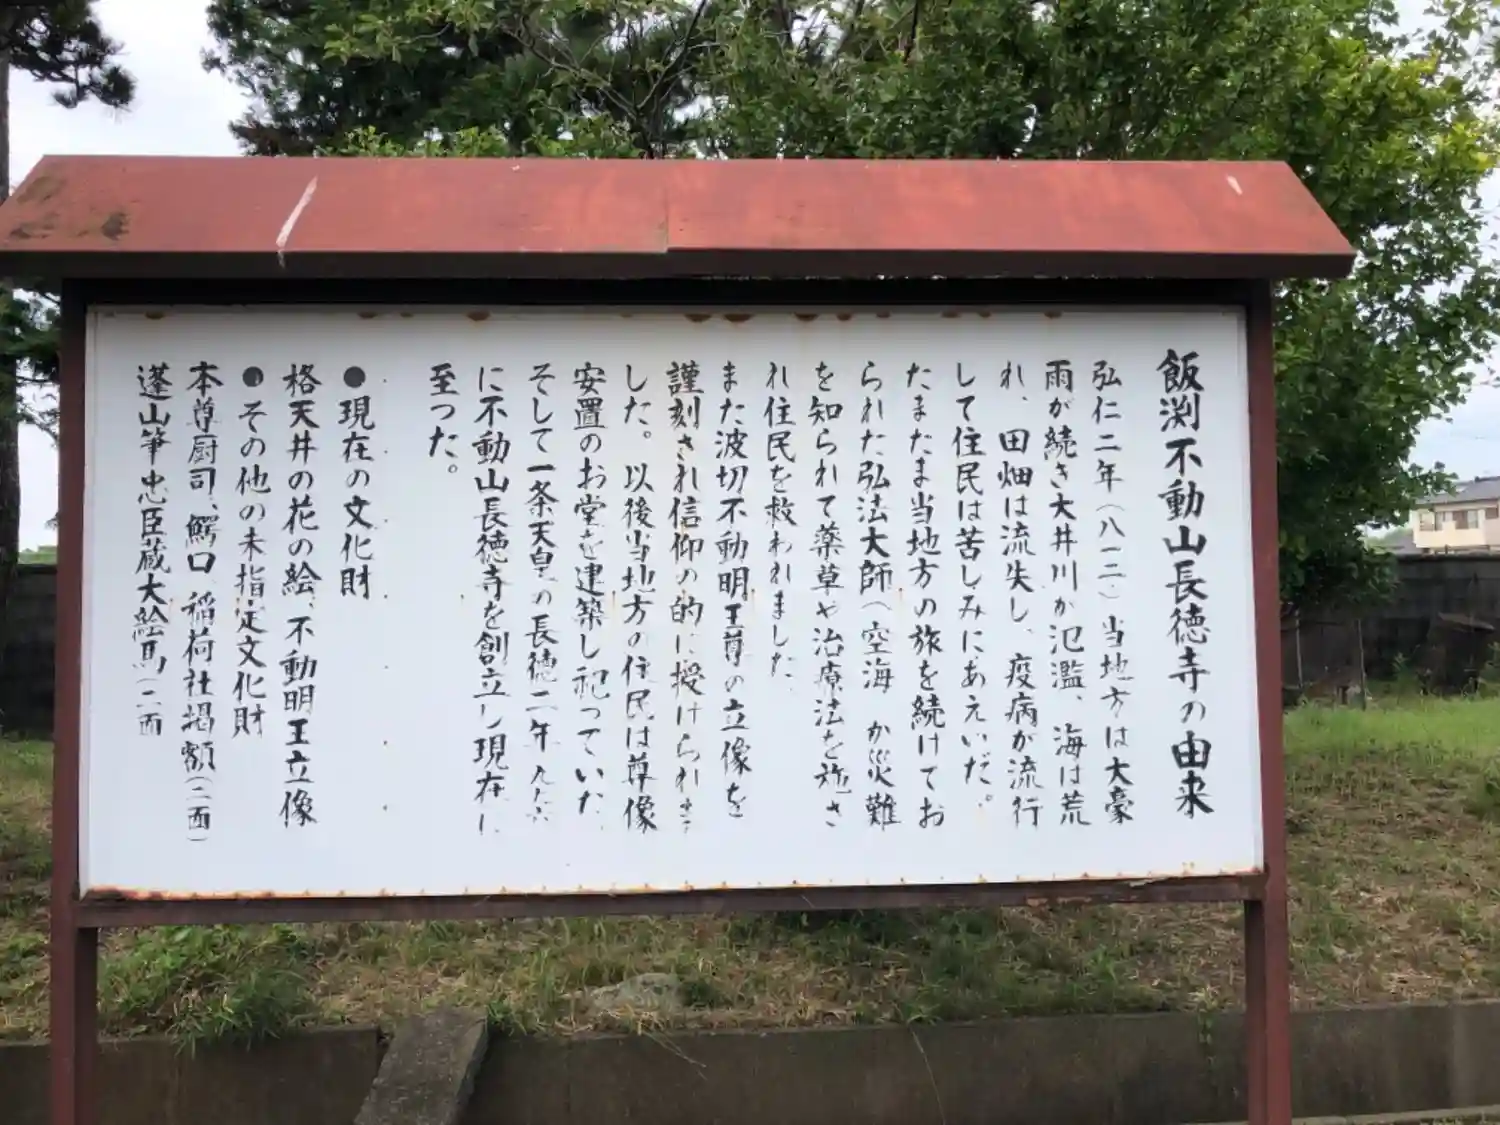 飯渕不動山長徳寺の由来
弘仁二年(八一二)当地方は大豪
雨が続き大井川が氾濫、海は荒
れ、田畑は流失し、疫病が流行
して住民は苦しみにあえいだ。
たまたま当地方の旅を続けてお
られた弘法大師(空海 が災難
を知られて薬草や治療法を施さ
れ住民を救われました
また波切不動明王尊の立像を
謹刻され信仰の的に授けられま
した。以後当地方の住民は尊像
安置のお堂を建築し祀っていた
そして一条天皇の長徳二年 九九六
に不動山長徳寺を創立し現在に
至つた。
●現在の文化財
格天井の花の絵、不動明王立像
●その他の未指定文化財
本尊厨司、鰐口、稲荷社掲額(二面)
蓬山筆忠臣蔵大絵馬(二面